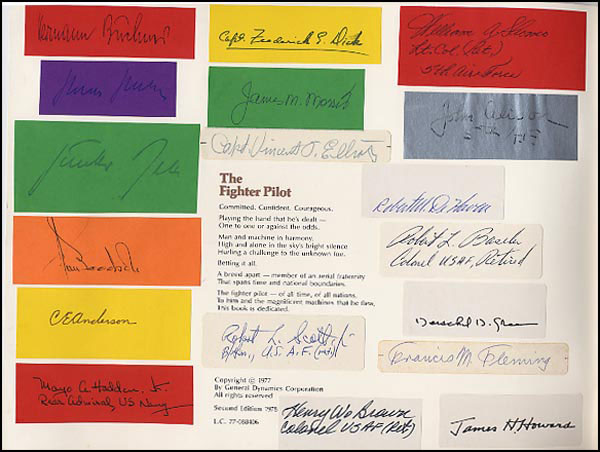 Hermann Buchner
CEAnderson
Mayo A. Hadden, Jr.
Rear Admiral, US Navy
Capt. Frederick E. Dick
James M. Morris
Capt. Vincent T. Elliott
The
Fighter Pilot
Committed. Confident. Courageous.
Playing the hand that he's dealt —
One to one or against the odds.
Man and machine in harmony,
High and alone in the sky's bright silence
Hurling a challenge to the unknown foe.
Betting it all.
A breed apart — member of an aerial fraternity
That spans time and national boundaries.
The fighter pilot — of all time, of all nations.
To him and the magnificent machines that he flew,
This book is dedicated.
Robert L. Scott, Jr.
B/Gen., U.S.A.F. (ret)
Copyright © 1977
By General Dynamics Corporation
All rights reserved
Second Edition 1978
L.C. 77-088406
Henry W. Brown
Colonel USAF (Ret)
William A.
Lt. Col. (Ret)
5th Air Force
John Alison
Robert M. DeHaven
Robert L. Baseler
Colonel USAF, Retired
Green
Francis M. Fleming
James H. Howard